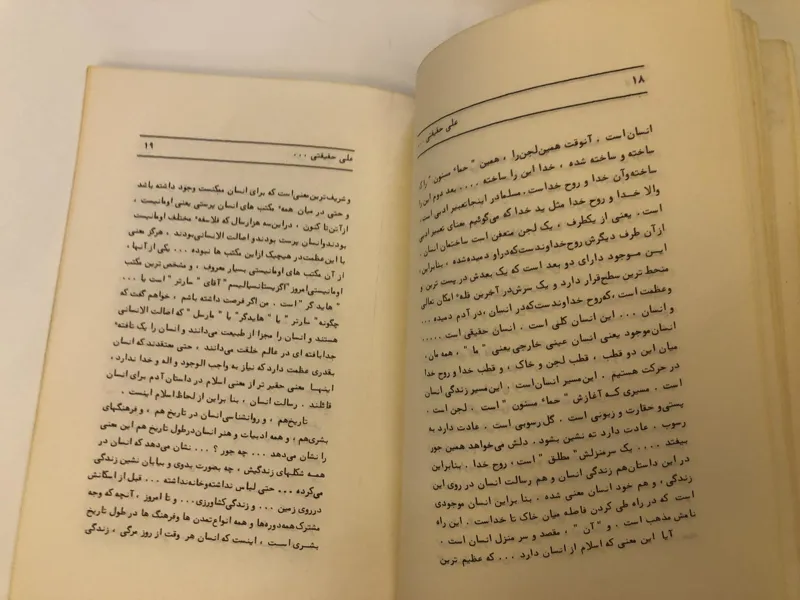 ۱۸
علی حقیقتی
انسان است ، آنوقت همین لجن را ، همین " حماء مسنون " را
ساخته و ساخته شده ، خدا این را ساخته .... بعد دوم این را
ساخته و آن خدا و روح خداست . مسلما در اینجا تعبیر ادبی است ،
والا خدا و روح خدا مثل ید خدا که می‌گوئیم معنای تعبیر ادبی
است . یعنی از یکطرف ، یک لجن متعفن است ساختمان انسان .
از آن طرف دیگرش روح خداوندست که در او دمیده شده ، بنابراین
این موجود دارای دو بعد است که یک بعدش در پست ترین و
منحط ترین سطح قرار دارد و یک سرش در آخرین قله ء امکان تعالی
و عظمت است ، که روح خداوندست که در انسان ، در آدم دمیده ...
و انسان ... این انسان کلی است . انسان حقیقی است .....
انسان موجود یعنی انسان عینی خارجی یعنی " ما " ، همه مان .
میان این دو قطب ، قطب لجن و خاک ، و قطب خدا و روح خدا
در حرکت هستیم . این مسیر انسان است . این مسیر زندگی انسان
است . مسیری که آغازش " حماء مسنون " است . لجن است .
پستی و حقارت و زبونی است . گل رسوبی است . عادت دارد به
رسوب . عادت دارد ته نشین بشود . دلش می‌خواهد همین جور
بیفتد .... یک سرمنزلش " مطلق " است ، روح خدا . بنابراین
در این داستان هم زندگی انسان و هم رسالت انسان در روی این
زندگی ، و هم خود انسان معنی شده . بنا براین انسان موجودی
است که در راه طی کردن فاصله میان خاک تا خداست . این راه
نامش مذهب است . و " آن " ، مقصد و سر منزل انسان است .
آیا این معنی که اسلام از انسان دارد ... که عظیم ترین
۱۹
علی حقیقتی ...
و شریف‌ترین معنی‌است که برای انسان میکنست وجود داشته باشد
و حتی در میان همه ء مکتب های انسان پرستی یعنی اومانیست ،
از آتن تا کنون ، در این سه هزار سال که فلاسفه ء مختلف اومانیست
بودند و انسان پرست بودند و اصالت الانسانی بودند ، هرگز معنی
با این عظمت در هیچیک از این مکتب ها نبوده ... یکی از آنها ،
از آن مکتب های اومانیستی بسیار معروف ، و مشخص ترین مکتب
اومانیستی امروز " اگزیستانسیالیسم " آقای " سارتر " است یا ...
" هایدگر " است . من اگر فرصت داشته باشم ، خواهم گفت که
چگونه " سارتر " یا " هایدگر " یا " مارسل " که اصالت الانسانی
هستند و انسان را مجزا از طبیعت می‌دانند و انسان را یک تافته ء
جدابافته ای در عالم خلقت می‌دانند ، حتی معتقدند که انسان
بقدری عظمت دارد که نیاز به واجب الوجود و اله و خدا ندارد ،
اینها معنی حقیر تر از معنی اسلام در داستان آدم برای انسان
قائلند . رسالت انسان ، بنا براین از لحاظ اسلام اینست .
تاریخ هم ، و روانشناسی انسان در تاریخ هم ، و فرهنگهای
بشری هم ، و همه ادبیات و هنر انسان در طول تاریخ هم این معنی
را نشان می‌دهد ... چه جور ؟ ... نشان می‌دهد که انسان در
همه شکلهای زندگیش ، چه بصورت بدوی و بیابان نشین زندگی
می‌کرده ... حتی لباس نداشته و خانه نداشته ... قبل از اسکانش
در روی زمین ... و زندگی کشاورزی ... و تا امروز ، آنچه که وجه
مشترک همه دوره‌ها و همه انواع تمدن ها و فرهنگ ها در طول تاریخ
بشری است ، اینست که انسان هر وقت از روز مرگی ، زندگی